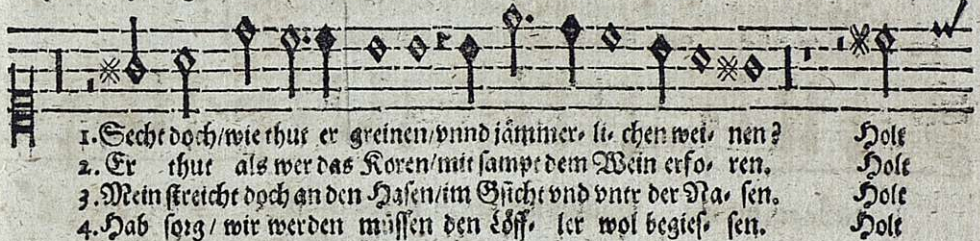 1. Secht doch/wie thut er greinen/vnnd jämmer- li- chen wei- nen? Holt
2. Er thut als wer das Koren/mit sampt dem Wein erfo- ren. Holt
3. Mein streicht doch an den Hasen/im Gsicht vnd vntr der Na- sen. Holt
4. Hab sorg/ wir werden müssen den Löff- ler wol begies- sen. Holt